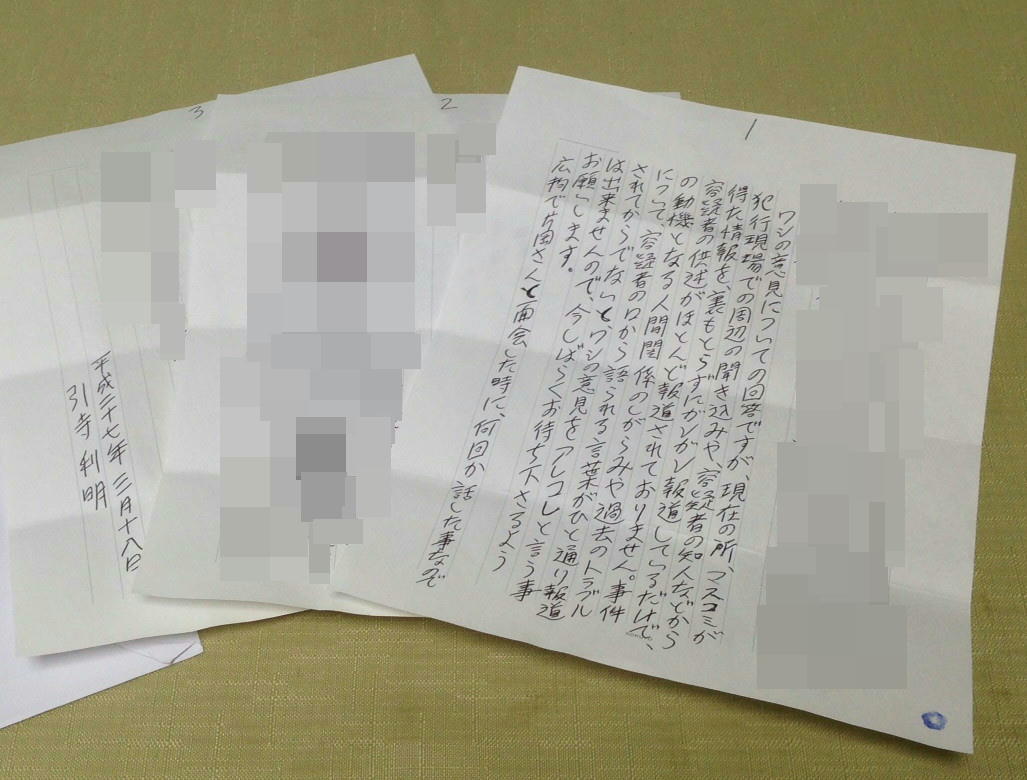 1
ワシの意見についての回答ですが、現在の所、マスコミが
犯行現場での周辺の聞き込みや、容疑者の知人などから
得た情報を、裏もとらずにガンガン報道しているだけで、
容疑者の供述がほとんど報道されておりません。事件
の動機となる人間関係のしがらみや過去のトラブル
について、容疑者の口から語られる言葉がひと通り報道
されてからでないと、ワシの意見をアレコレと言う事
は出来ませんので、今しばらくお待ち下さるよう
お願いします。
広拘で片岡さんと面会した時に、何回か話した事なので
2
3
平成二十七年三月十八日
引寺利明